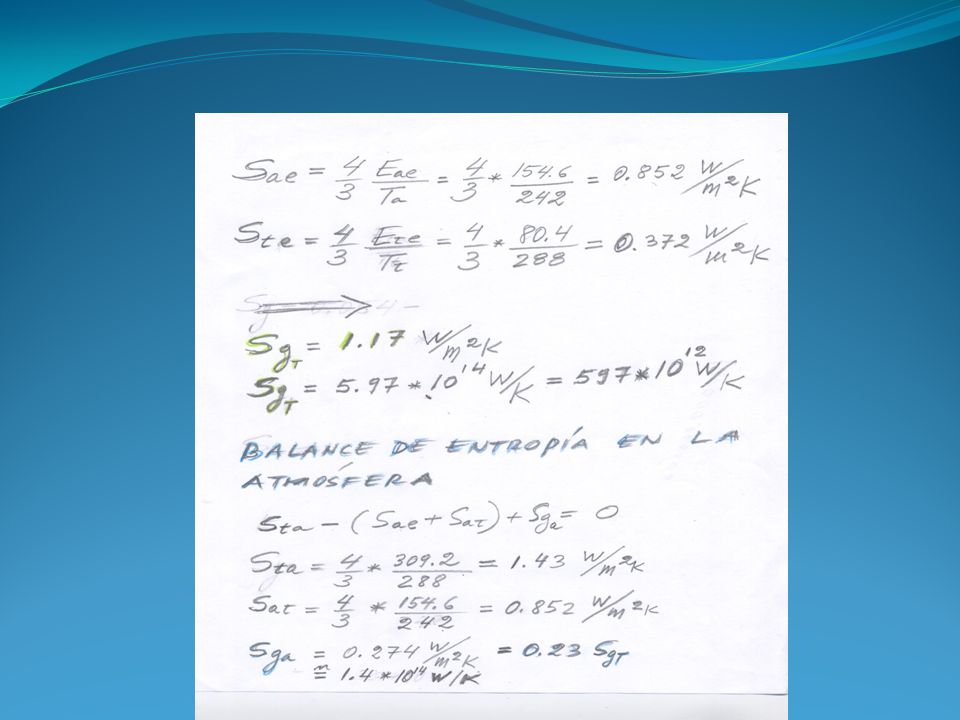 Sae = 4/3 Eae/Ta = 4/3 * 154.6/242 = 0.852 W/m²K
Ste = 4/3 Eτe/Tτ = 4/3 * 80.4/288 = 0.372 W/m²K
SgT = 1.17 W/m²K
SgT = 5.97 * 10^14 W/K = 597 * 10^12 W/K
BALANCE DE ENTROPÍA EN LA
ATMÓSFERA
Sta - (Sae + Saτ) + Sga = 0
Sta = 4/3 * 309.2/288 = 1.43 W/m²K
Saτ = 4/3 * 154.6/242 = 0.852 W/m²K
Sga = 0.274 W/m²K = 0.23 SgT
≅ 1.4 * 10^14 W/K